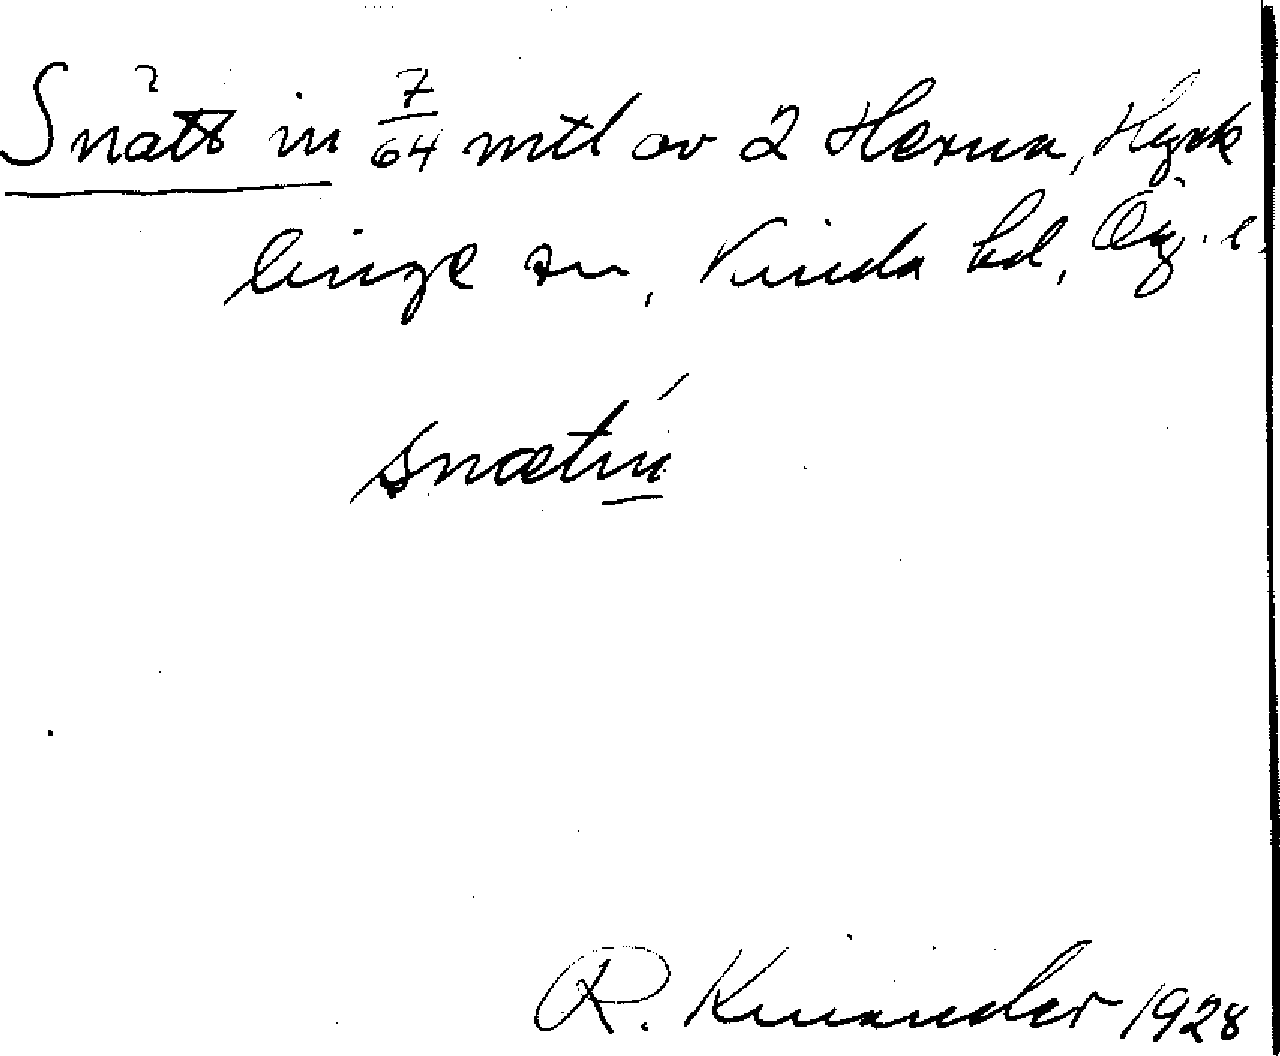 Snätt in 7/64 mtl av 2 Hexua, Hyck
linge sn, Kinda hd, Ög. l.
snætın
R. Kinander 1928